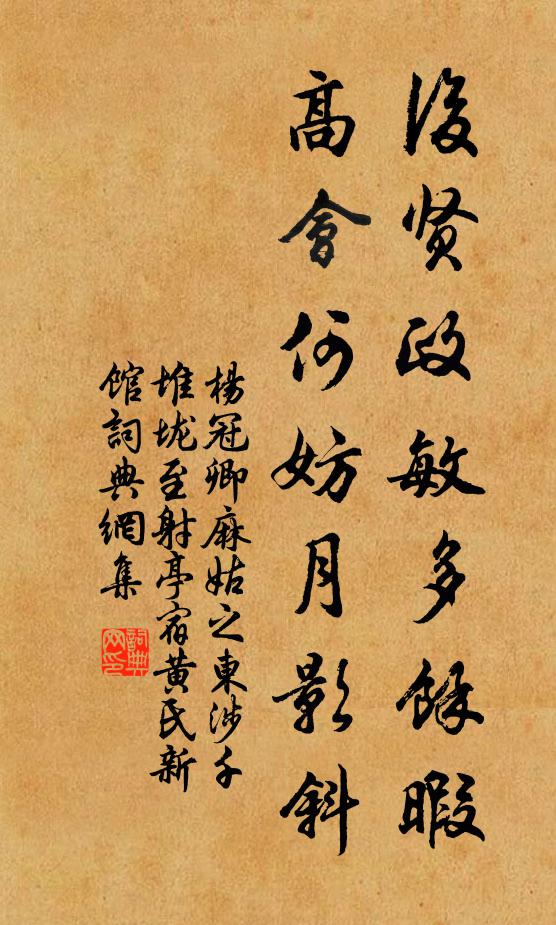 後贤政敏多餘暇
高會何妨月影斜
楊冠卿麻姑之東涉千
堆垅至射亭宿黄民新
館詞典網集
詞典网印